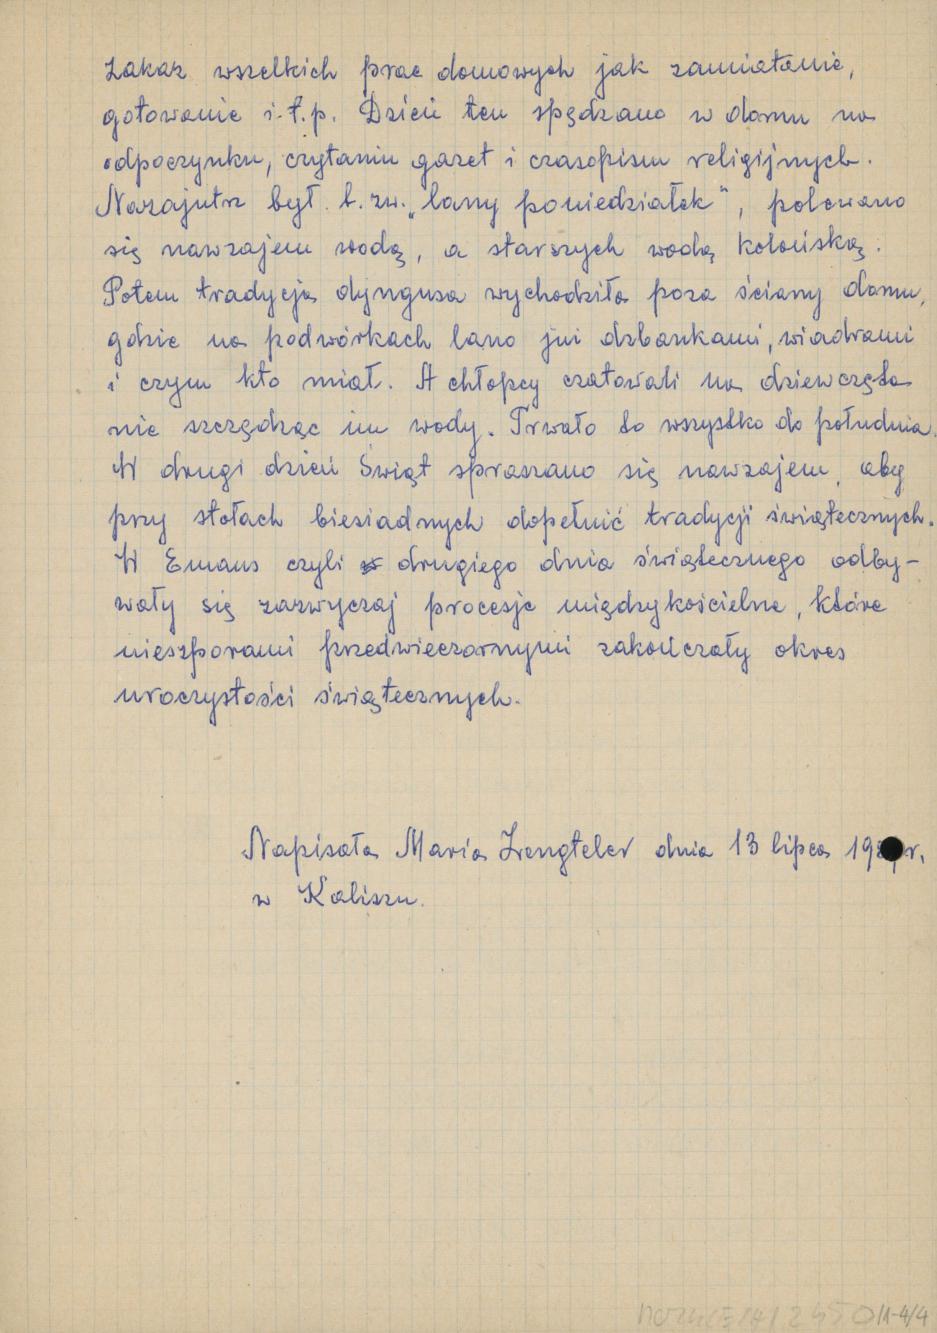 zakaz wszelkich prac domowych jak zamiatanie,
gotowanie i.t.p. Dzień ten spędzano w domu na
odpoczynku, czytaniu gazet i czasopism religijnych.
Nazajutrz był t.zw. „lany poniedziałek", polewano
się nawzajem wodą, a starszych wodą kolońską.
Potem tradycja dyngusa wychodziła poza ściany domu,
gdzie na podwórkach lano już dzbankami, wiadrami
i czym kto miał. A chłopcy czatowali na dziewczęta
nie szczędząc im wody. Trwało to wszystko do południa.
W drugi dzień Świąt spraszano się nawzajem, aby
przy stołach biesiadnych dopełnić tradycji świątecznych.
W Emaus czyli drugiego dnia świątecznego odby-
wały się zazwyczaj procesje międzykościelne, które
nieszporami przedwieczornymi zakończały okres
uroczystości świątecznych.
Napisała Maria dnia 13 lipca r.
w Kaliszu.
1-4/4